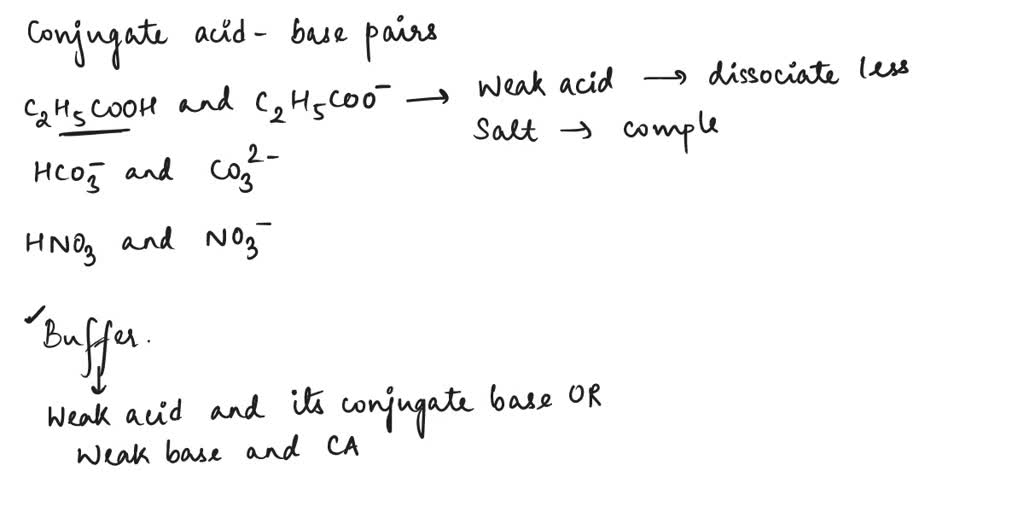 Conjugate acid - base pairs
C₂H₅COOH and C₂H₅COO⁻ → Weak acid → dissociate less
Salt → comple
HCO₃⁻ and CO₃²⁻
HNO₃ and NO₃⁻
✓Buffer.
↓
Weak acid and its conjugate base OR
Weak base and CA